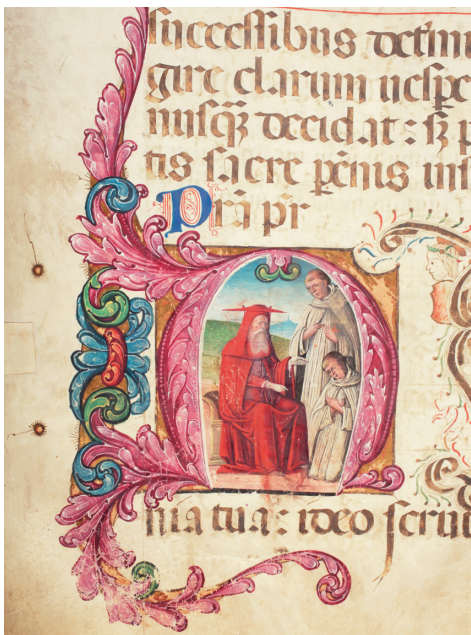 successibus
gire clarum uespe
nusqꝫ decidat: sꝫ p
tis sacre penis
Prã pr̃
M
nia tua: ideo scrut